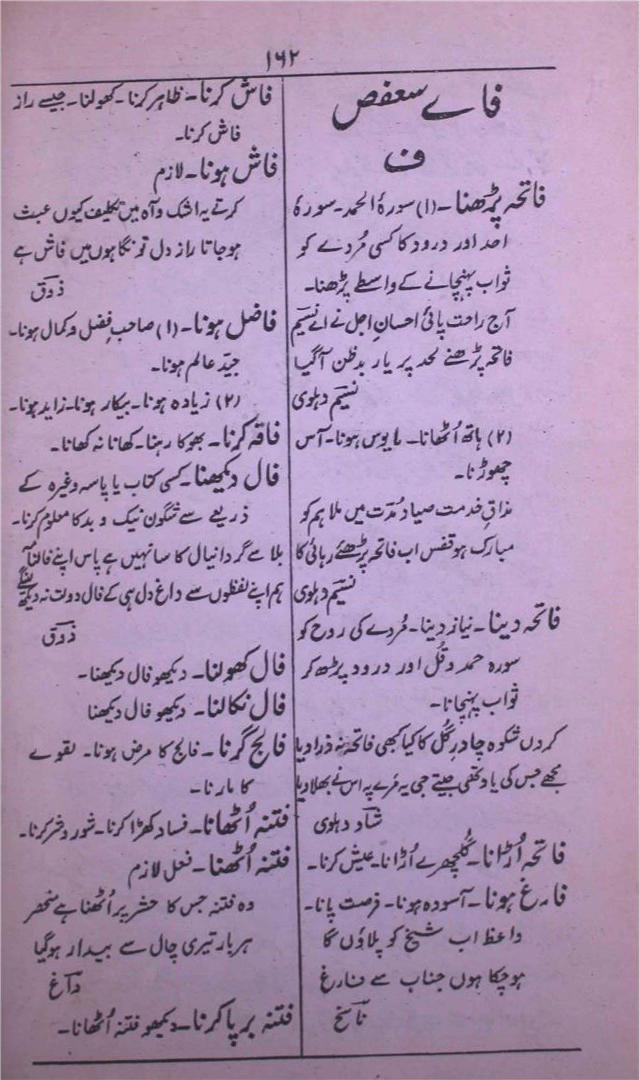 ۱۶۲
فاے سعفص
ف
فاتحہ پڑھنا۔ (۱) سورۂ الحمد۔ سورۂ
احد اور درود کا کسی مُردے کو
ثواب پہنچانے کے واسطے پڑھنا۔
آج راحت پائی احسانِ اجل نے اے نسیم
فاتحہ پڑھنے لحد پر یار بدظن آگیا
نسیم دہلوی
(۲) ہاتھ اُٹھانا۔ مایوس ہونا۔ آس
چھوڑنا۔
مذاقِ خدمت صیاد مُدّت میں ملا ہم کو
مبارک ہو قفس اب فاتحہ پڑھئے رہائی کا
نسیم دہلوی
فاتحہ دینا۔ نیاز دینا۔ مُردے کی روح کو
سورہ حمد و قُل اور درود پڑھ کر
ثواب پہنچانا۔
کردں شکوہ چادرِ گل کا کیا کبھی فاتحہ نہ ذرا دیا
مجھے جس کی یاد تھی جیتے جی یہ مَرے پہ اس نے بھلا دیا
شاد دہلوی
فاتحہ اُڑانا۔ گلچھرے اُڑانا۔ عیش کرنا۔
فارغ ہونا۔ آسودہ ہونا۔ فرصت پانا۔
داعظ اب شیخ کو پلاؤں گا
ہوچکا ہوں جناب سے فارغ
ناسخ
فاش کرنا۔ ظاہر کرنا۔ کھولنا۔ جیسے راز
فاش کرنا۔
فاش ہونا۔ لازم
کرتے یہ اشک و آہ ہیں تکلیف کیوں عبث
ہوجاتا راز دل تو نگاہوں میں فاش ہے
ذوق
فاضل ہونا۔ (۱) صاحبِ فضل و کمال ہونا۔
جیّد عالم ہونا۔
(۲) زیادہ ہونا۔ بیکار ہونا۔ زاید ہونا۔
فاقہ کرنا۔ بھوکا رہنا۔ کھانا نہ کھانا۔
فال دیکھنا۔ کسی کتاب یا پاسہ وغیرہ کے
ذریعے سے شگون نیک و بد کا معلوم کرنا۔
بلا سے گر دانیال کا سا نہیں ہے پاس اپنے فالنامہ
ہم اپنے لفظوں سے داغ دل ہی کے فال دولت نہ دیکھ لینگے
ذوق
فال کھولنا۔ دیکھو فال دیکھنا۔
فال نکالنا۔ دیکھو فال دیکھنا
فالج گرنا۔ فالج کا مرض ہونا۔ لقوے
کا مارنا۔
فتنہ اُٹھانا۔ فساد کھڑا کرنا۔ شور و شر کرنا۔
فتنہ اُٹھنا۔ فعل لازم
وہ فتنہ جس کا حشر پر اُٹھنا ہے منحصر
ہر بار تیری چال سے بیدار ہوگیا
داغ
فتنہ برپا کرنا۔ دیکھو فتنہ اُٹھانا۔